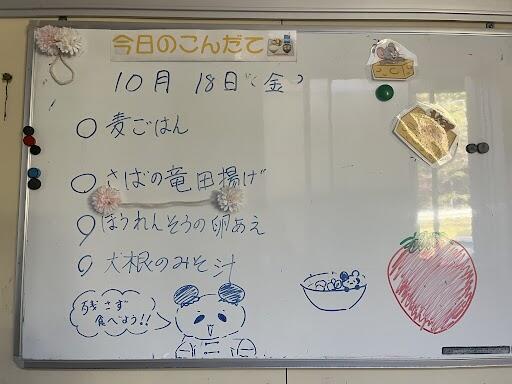 今日のこんだて
10月 18日(金)
○麦ごはん
○さばの竜田揚げ
○ほうれんそうの卵あえ
○大根のみそ汁
残さず
食べよう!!